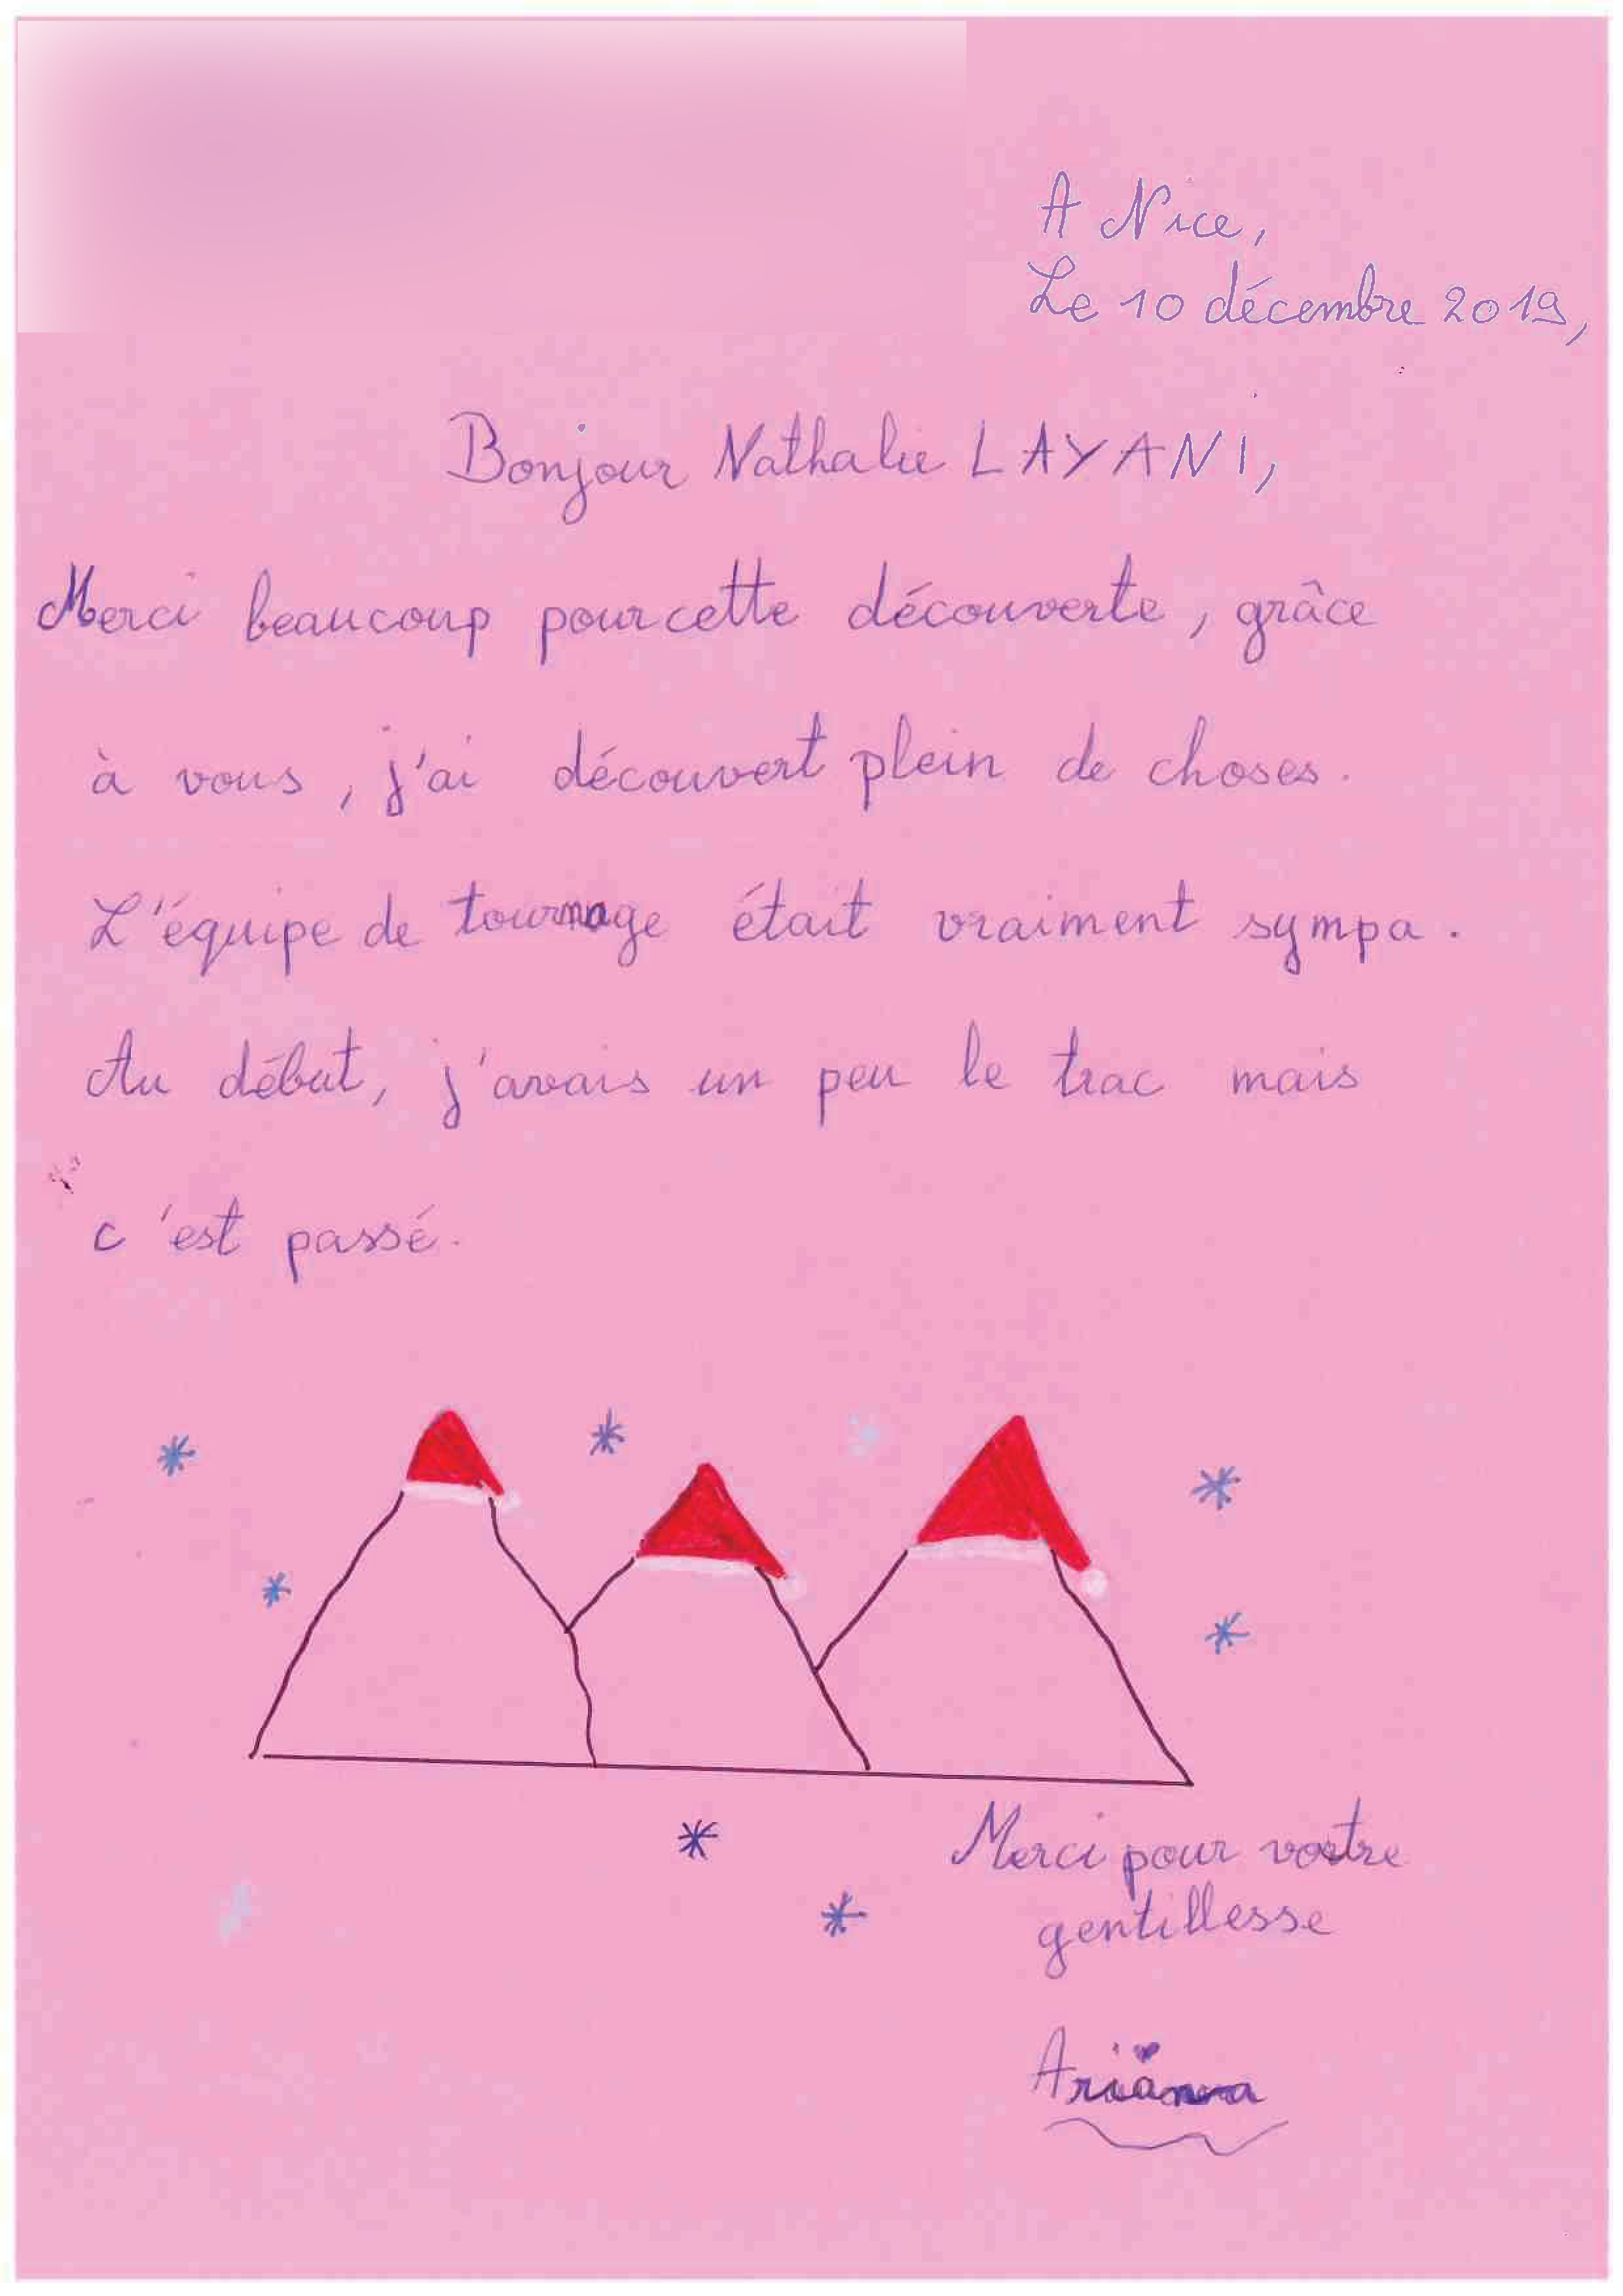 A Nice,
Le 10 décembre 2019,
Bonjour Nathalie LAYANI,
Merci beaucoup pour cette découverte, grâce
à vous, j'ai découvert plein de choses.
L'équipe de tournage était vraiment sympa.
Au début, j'avais un peu le trac mais
c'est passé.
Merci pour votre
gentillesse
Arianna